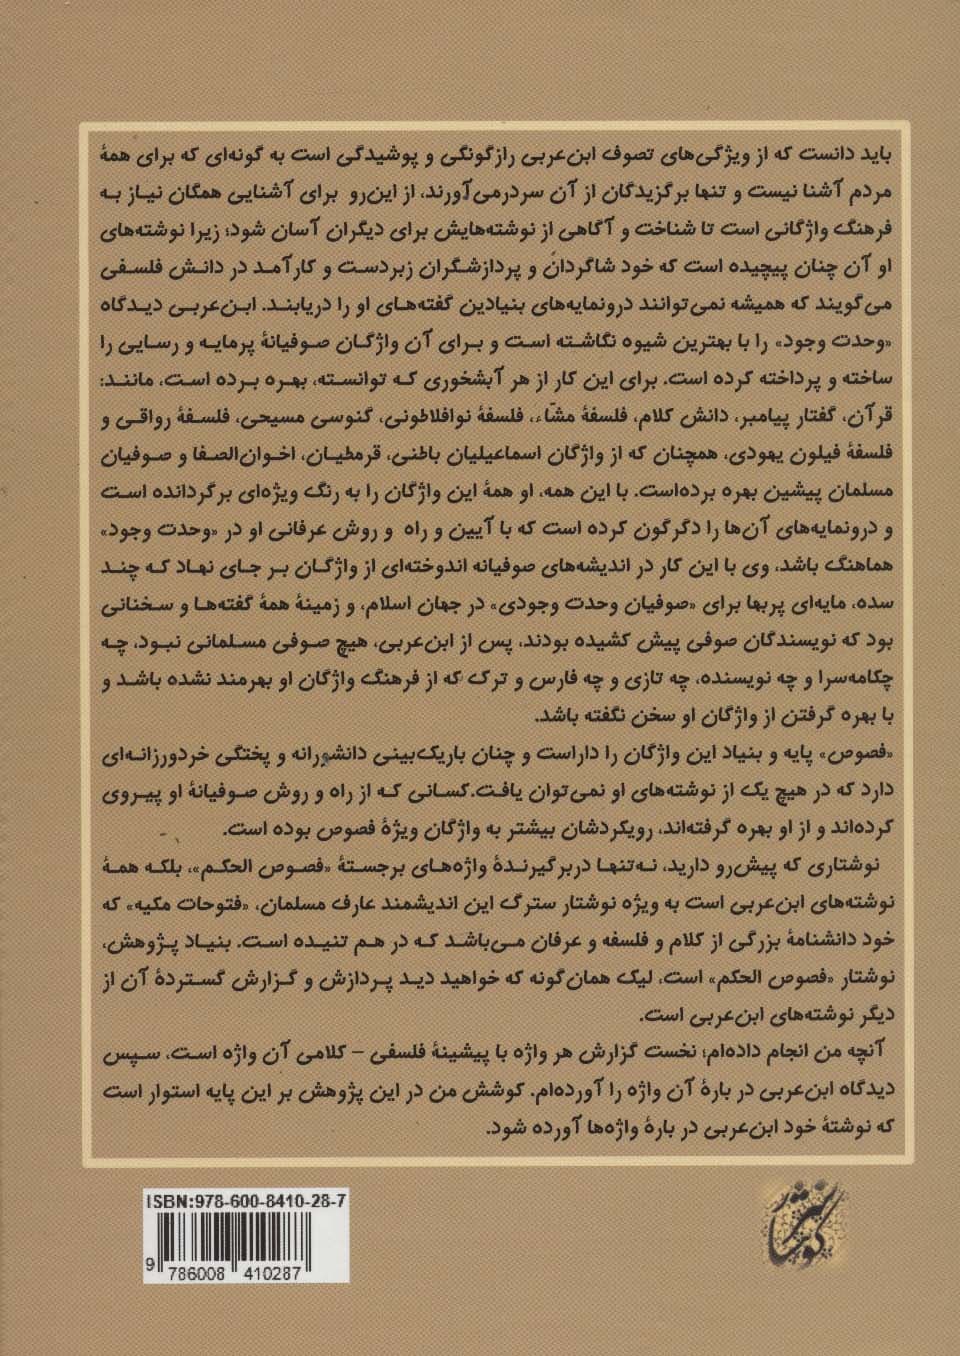 باید دانست که از ویژگی‌های تصوف ابن‌عربی رازگونگی و پوشیدگی است به گونه‌ای که برای همهٔ
مردم آشنا نیست و تنها برگزیدگان از آن سردرمی‌آورند، از این‌رو برای آشنایی همگان نیاز به
فرهنگ واژگانی است تا شناخت و آگاهی از نوشته‌هایش برای دیگران آسان شود؛ زیرا نوشته‌های
او آن چنان پیچیده است که خود شاگردان و پردازشگران زبردست و کارآمد در دانش فلسفی
می‌گویند که همیشه نمی‌توانند درونمایه‌های بنیادین گفته‌های او را دریابند. ابن‌عربی دیدگاه
«وحدت وجود» را با بهترین شیوه نگاشته است و برای آن واژگان صوفیانهٔ پرمایه و رسایی را
ساخته و پرداخته کرده است. برای این کار از هر آبشخوری که توانسته، بهره برده است، مانند:
قرآن، گفتار پیامبر، دانش کلام، فلسفهٔ مشّاء، فلسفهٔ نوافلاطونی، گنوسی مسیحی، فلسفهٔ رواقی و
فلسفهٔ فیلون یهودی، همچنان که از واژگان اسماعیلیان باطنی، قرمطیان، اخوان‌الصفا و صوفیان
مسلمان پیشین بهره برده‌است. با این همه، او همهٔ این واژگان را به رنگ ویژه‌ای برگردانده است
و درونمایه‌های آن‌ها را دگرگون کرده است که با آیین و راه و روش عرفانی او در «وحدت وجود»
هماهنگ باشد، وی با این کار در اندیشه‌های صوفیانه اندوخته‌ای از واژگان بر جای نهاد که چند
سده، مایه‌ای پربها برای «صوفیان وحدت وجودی» در جهان اسلام، و زمینهٔ همهٔ گفته‌ها و سخنانی
بود که نویسندگان صوفی پیش کشیده بودند، پس از ابن‌عربی، هیچ صوفی مسلمانی نبود، چه
چکامه‌سرا و چه نویسنده، چه تازی و چه فارس و ترک که از فرهنگ واژگان او بهرمند نشده باشد و
با بهره گرفتن از واژگان او سخن نگفته باشد.
«فصوص» پایه و بنیاد این واژگان را داراست و چنان باریک‌بینی دانشورانه و پختگی خردورزانه‌ای
دارد که در هیچ یک از نوشته‌های او نمی‌توان یافت.کسانی که از راه و روش صوفیانهٔ او پیروی
کرده‌اند و از او بهره گرفته‌اند، رویکردشان بیشتر به واژگان ویژهٔ فصوص بوده است.
نوشتاری که پیش‌رو دارید، نه‌تنها دربرگیرندهٔ واژه‌های برجستهٔ «فصوص الحکم»، بلکه همهٔ
نوشته‌های ابن‌عربی است به ویژه نوشتار سترگ این اندیشمند عارف مسلمان، «فتوحات مکیه» که
خود دانشنامهٔ بزرگی از کلام و فلسفه و عرفان می‌باشد که در هم تنیده است. بنیاد پژوهش،
نوشتار «فصوص الحکم» است، لیک همان‌گونه که خواهید دید پردازش و گزارش گستردهٔ آن از
دیگر نوشته‌های ابن‌عربی است.
آنچه من انجام داده‌ام؛ نخست گزارش هر واژه با پیشینهٔ فلسفی – کلامی آن واژه است، سپس
دیدگاه ابن‌عربی در بارهٔ آن واژه را آورده‌ام. کوشش من در این پژوهش بر این پایه استوار است
که نوشتهٔ خود ابن‌عربی در بارهٔ واژه‌ها آورده شود.
ISBN:978-600-8410-28-7
9 786008 410287
نشر
گویا